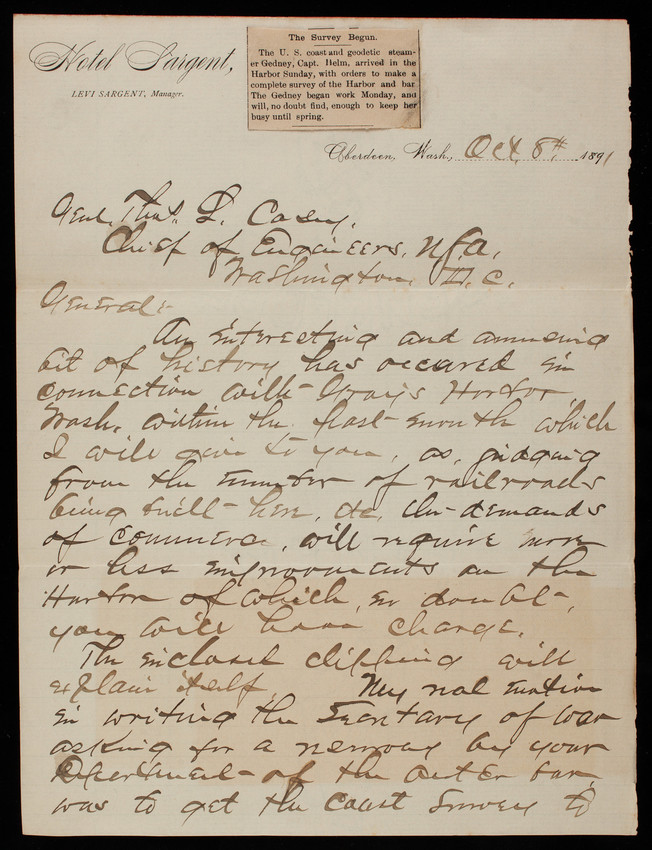 Hotel Sargent,
LEVI SARGENT, Manager.
The Survey Begun.
The U. S. coast and geodetic steam-
er Gedney, Capt. Helm, arrived in the
Harbor Sunday, with orders to make a
complete survey of the Harbor and bar
The Gedney began work Monday, and
will, no doubt find, enough to keep her
busy until spring.
Aberdeen, Wash., Oct 8th, 1891
Genl. Thos. L. Casey,
Chief of Engineers, U.S.A.
Washington D.C.
General:-
An interesting and amusing
bit of history has occured in
connection with Grays Harbor,
Wash. within the past month which
I will give to you, as, judging
from the number of railroads
being built here, etc. the demands
of commerce, will require more
or less improvements on the
Harbor of which, no doubt,
you will have charge.
The enclosed clipping will
explain itself. My real motive
in writing the Secretary of War
asking for a resurvey by your
Department of the outer bar,
was to get the Coast Survey to